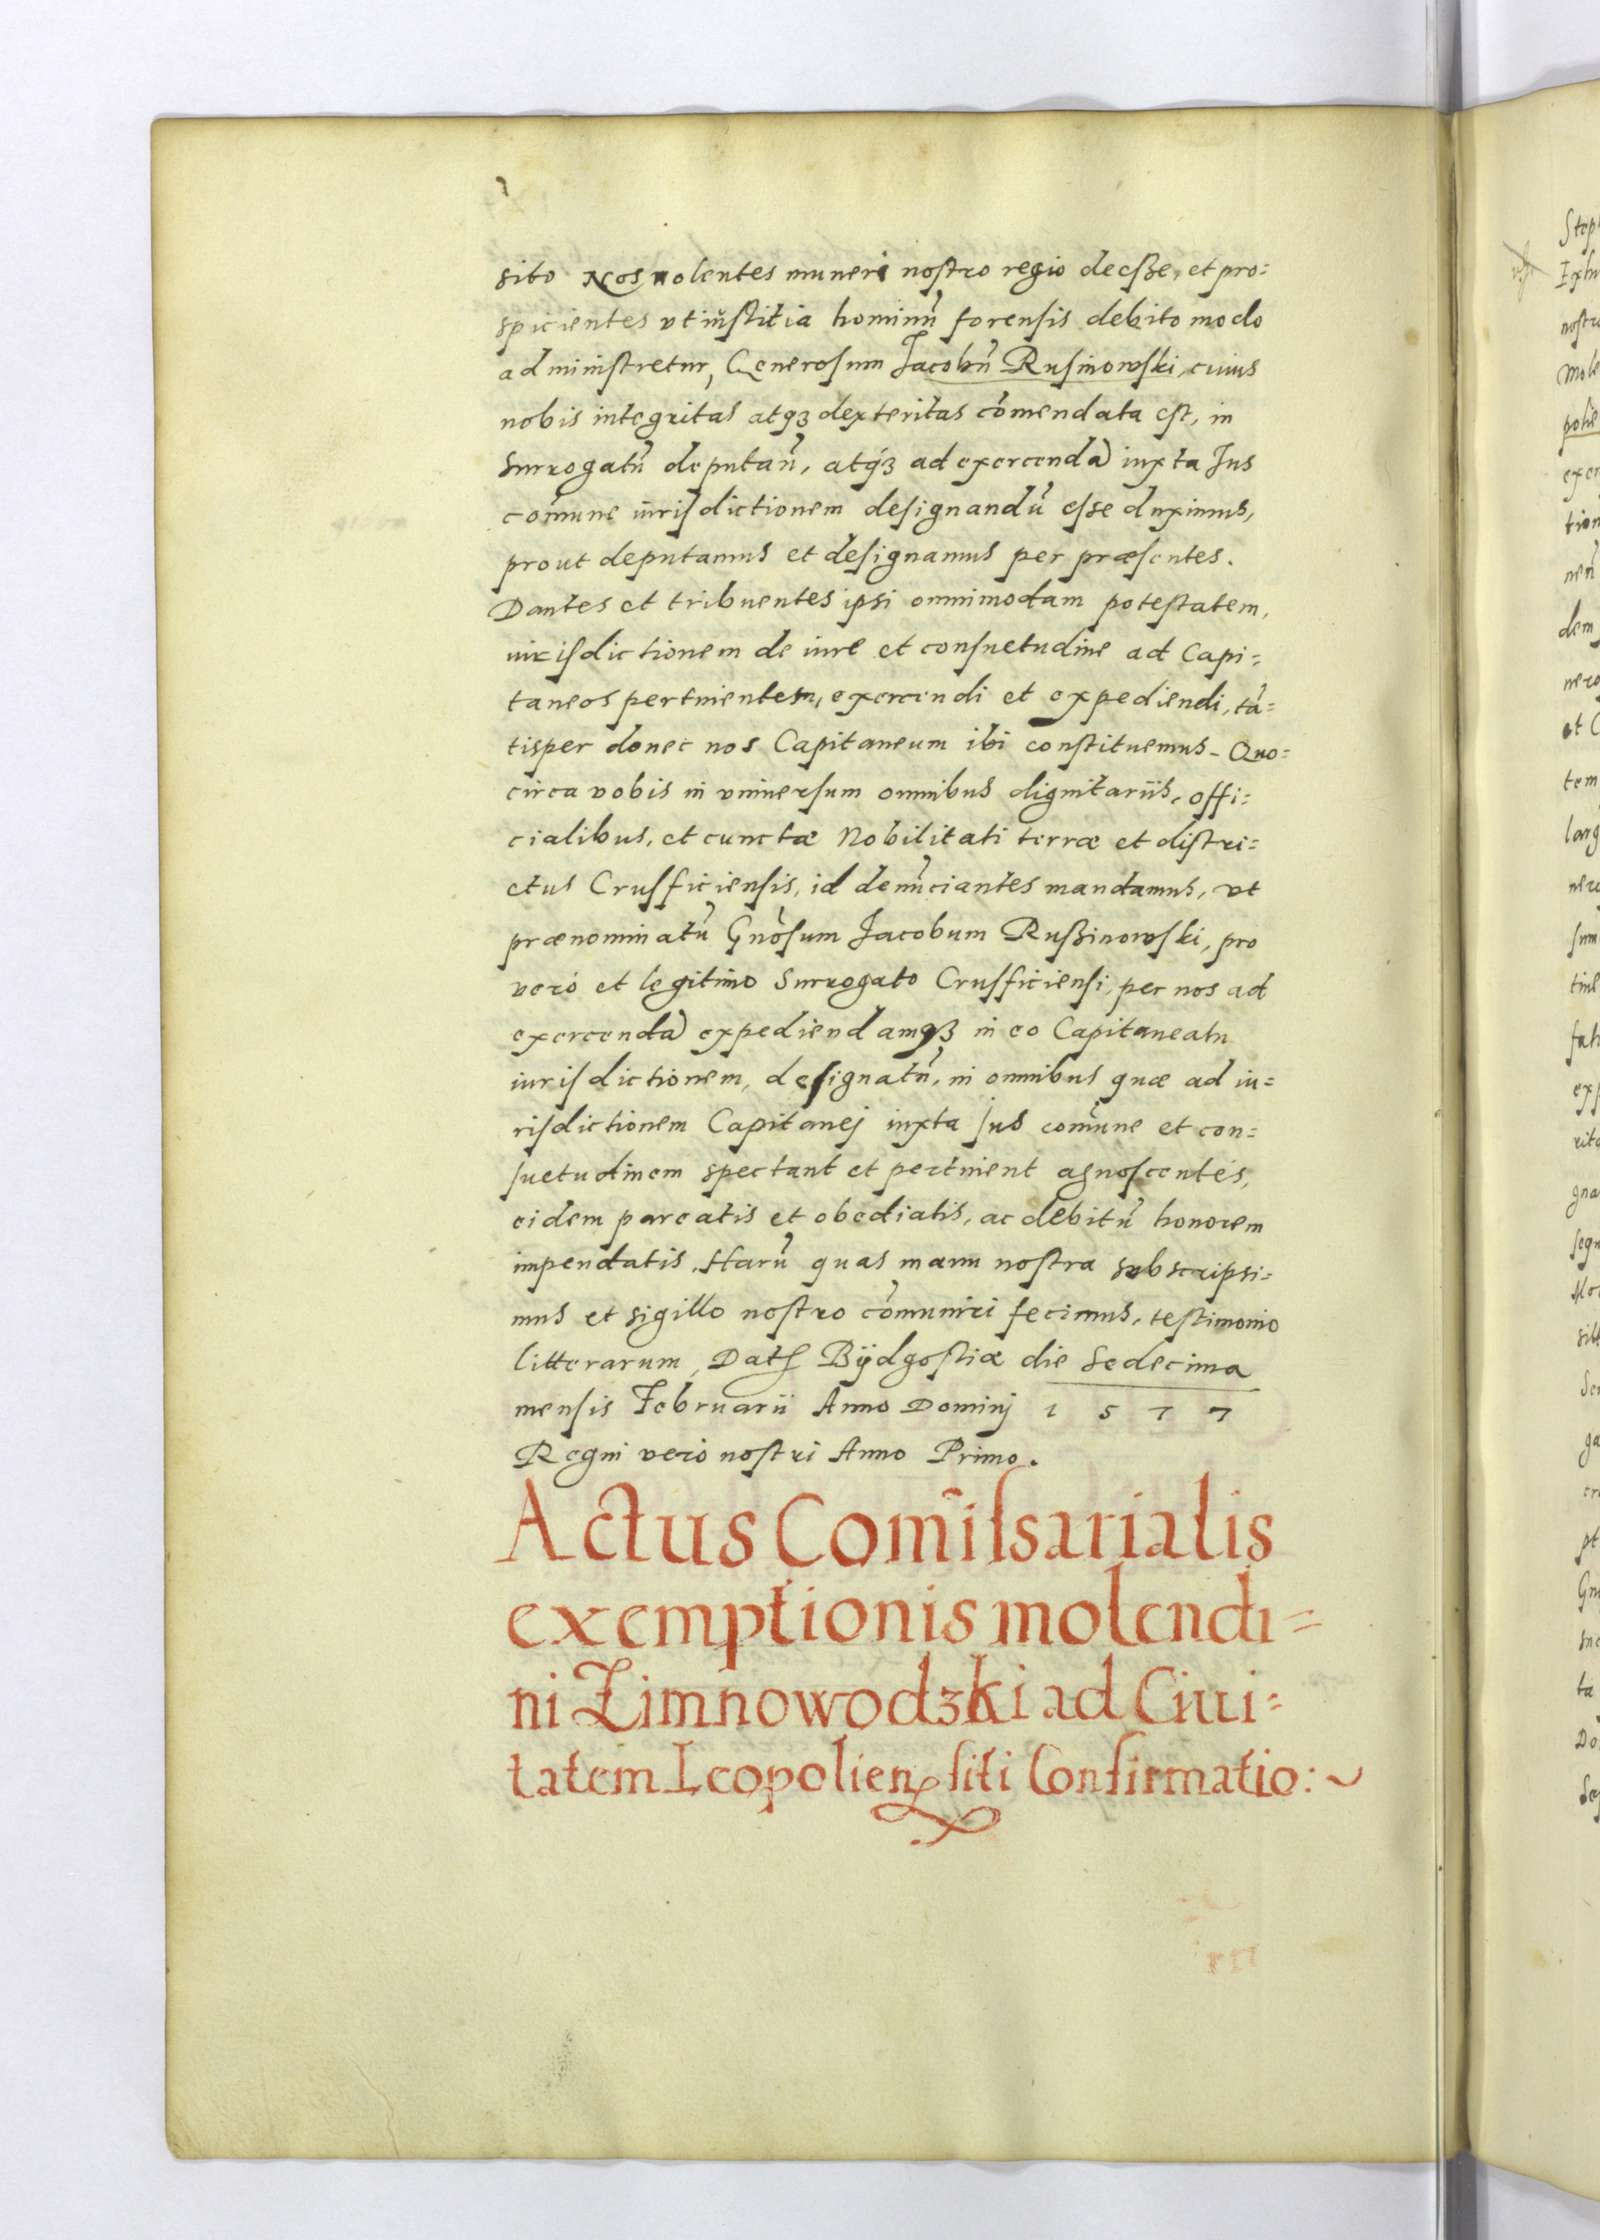 sito Nos nolentes muneri nostro regio deesse, et pro=
spicientes vt iustitia hominũ forensis debito modo
administretur, Generosum Jacobũ Rusinowski, cuius
nobis integritas atqȝ dexteritas cõmendata est, in
Surrogatũ deputañ, atqȝ ad exercendã iuxta Jus
cõmune iurisdictionem designandũ esse duximus,
prout deputamus et designamus per præsentes.
Dantes et tribuentes ipsi omnimodam potestatem,
iurisdictionem de iure et consuetudine ad Capi=
taneos pertinentem, exercendi et expediendi, tã=
tisper donec nos Capitaneum ibi constituemus. Quo=
circa vobis in vniuersum omnibus dignitariis, offi=
cialibus, et cunctæ Nobilitati terræ et distri=
ctus Crusficiensis, id denũciantes mandamus, vt
prænominatũ Gnõsum Jacobum Rußinowski, pro
vero et legitimo Surrogato Crusficiensi, per nos ad
exercendã expediendamqȝ in eo Capitaneatu
iurisdictionem, designatũ, in omnibus quæ ad iu=
risdictionem Capitanej iuxta Jus comũne et con=
suetudinem spectant et pertinent agnoscentes,
eidem pareatis et obediatis, ac debitũ honorem
impendatis. Harũ quas manu nostra subscripsi=
mus et sigillo nostro cõmuniri fecimus, testimonio
litterarum, Datꝭ Bÿdgostiæ die Sedecima
mensis Februarii Anno Dominj 1 5 7 7
Regni vero nostri Anno Primo.
Actus Com̃issarialis
exemptionis molendi=
ni Zimnowodzki ad Ciui=
tatem Leopolienꝭ siti Confirmatio:~